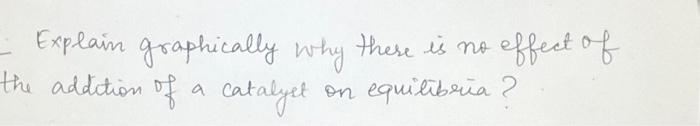 - Explain graphically why there is no effect of
the addition of a catalyst on equilibria?